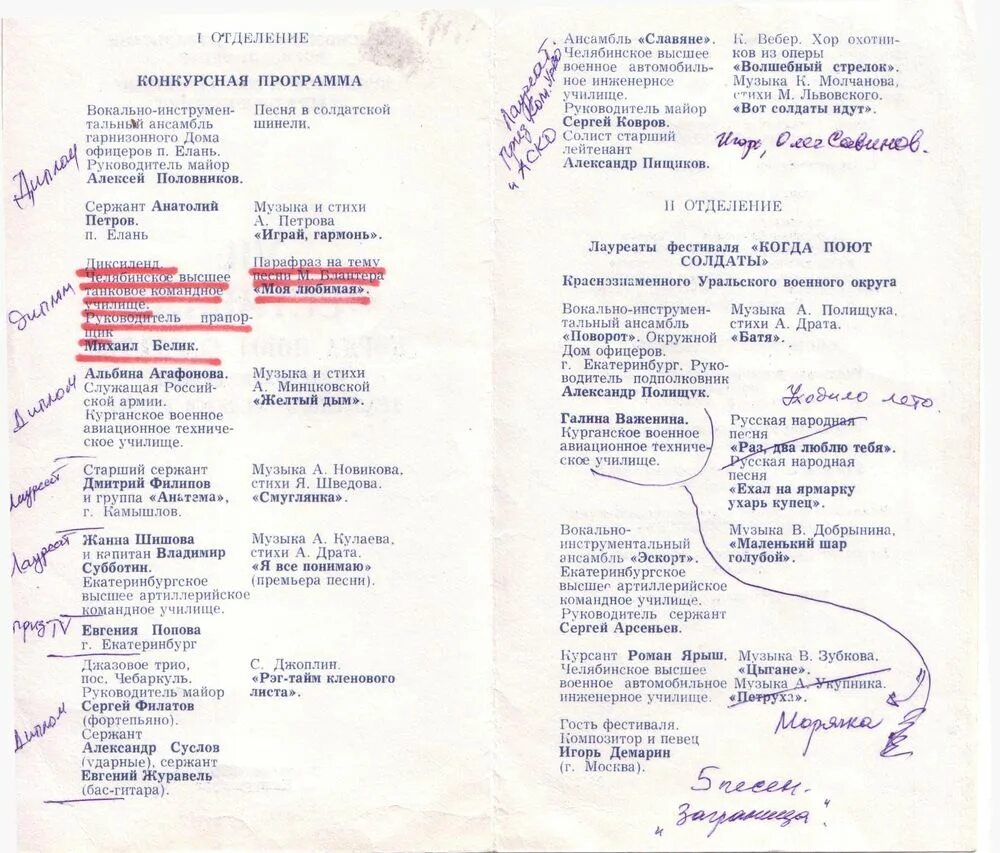 I ОТДЕЛЕНИЕ
КОНКУРСНАЯ ПРОГРАММА
Вокально-инструмен- Песня в солдатской
тальный ансамбль шинели.
гарнизонного Дома
офицеров п. Елань.
Руководитель майор
Алексей Половников.
Диплом
Сержант Анатолий Музыка и стихи
Петров. А. Петрова
п. Елань «Играй, гармонь».
Диксиленд. Парафраз на тему
Челябинское высшее песни М. Блантера
танковое командное «Моя любимая».
училище.
Руководитель прапор-
щик
Михаил Белик.
Диплом
Альбина Агафонова. Музыка и стихи
Служащая Россий- А. Минцковской
ской армии. «Желтый дым».
Курганское военное
авиационное техниче-
ское училище.
Диплом
Старший сержант Музыка А. Новикова,
Дмитрий Филипов стихи Я. Шведова.
и группа «Анатема», «Смуглянка».
г. Камышлов.
Лауреат
Жанна Шишова Музыка А. Кулаева,
и капитан Владимир стихи А. Драта.
Субботин. «Я все понимаю»
Екатеринбургское (премьера песни).
высшее артиллерийское
командное училище.
Лауреат
приз TV
Евгения Попова
г. Екатеринбург
Джазовое трио, С. Джоплин.
пос. Чебаркуль. «Рэг-тайм кленового
Руководитель майор листа».
Сергей Филатов
(фортепьяно).
Сержант
Александр Суслов
(ударные), сержант
Евгений Журавель
(бас-гитара).
Диплом
Ансамбль «Славяне». К. Вебер. Хор охотни-
Челябинское высшее ков из оперы
военное автомобиль- «Волшебный стрелок».
ное инженерное Музыка К. Молчанова,
училище. стихи М. Львовского.
Руководитель майор «Вот солдаты идут».
Сергей Ковров.
Солист старший
лейтенант
Александр Пищиков.
Лауреат.
Приз Ком.УрВО
и АСКО
Игорь, Олег Савинов.
II ОТДЕЛЕНИЕ
Лауреаты фестиваля «КОГДА ПОЮТ
СОЛДАТЫ»
Краснознаменного Уральского военного округа
Вокально-инструмен- Музыка А. Полищука,
тальный ансамбль стихи А. Драта.
«Поворот». Окружной «Батя».
Дом офицеров.
г. Екатеринбург. Руко-
водитель подполковник
Александр Полищук.
Уходило лето.
Галина Важенина. Русская народная
Курганское военное песня
авиационное техниче- «Раз, два люблю тебя».
ское училище. Русская народная
песня
«Ехал на ярмарку
ухарь купец».
Вокально- Музыка В. Добрынина,
инструментальный «Маленький шар
ансамбль «Эскорт». голубой».
Екатеринбургское
высшее артиллерийское
командное училище.
Руководитель сержант
Сергей Арсеньев.
Курсант Роман Ярыш, Музыка В. Зубкова,
Челябинское высшее «Цыгане».
военное автомобильное Музыка А. Укупника.
инженерное училище. «Петруха».
Морячка
Гость фестиваля.
Композитор и певец
Игорь Демарин
(г. Москва).
5 песен.
"Заграница"